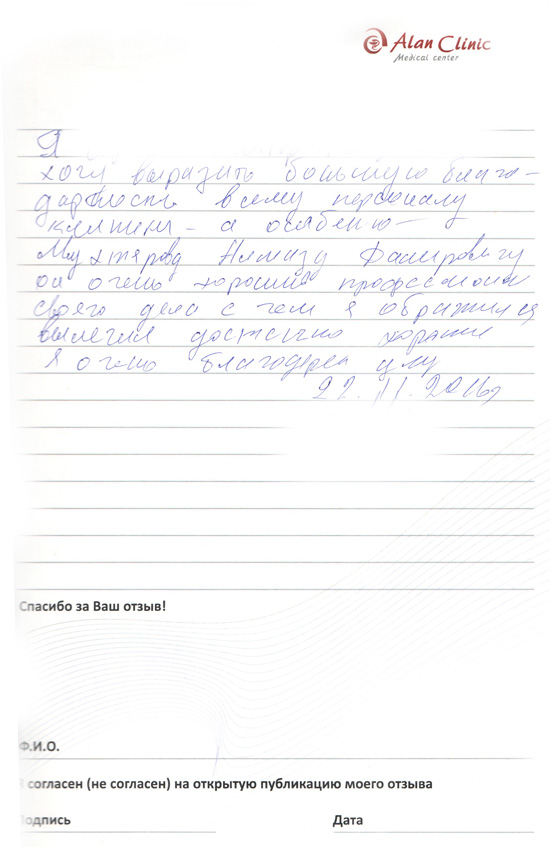 Alan Clinic
Medical center
Я
хочу выразить большую блага-
дарность всему персоналу
клиники - а особенно
Мухтярову Алмазу Фасировичу
он очень хороший професионал
своего дела с чем я обратился
вылечил достаточно хорошо
Я очень благодарен ему
22.11.2016г
Спасибо за Ваш отзыв!
Ф.И.О.
согласен (не согласен) на открытую публикацию моего отзыва
Подпись
Дата